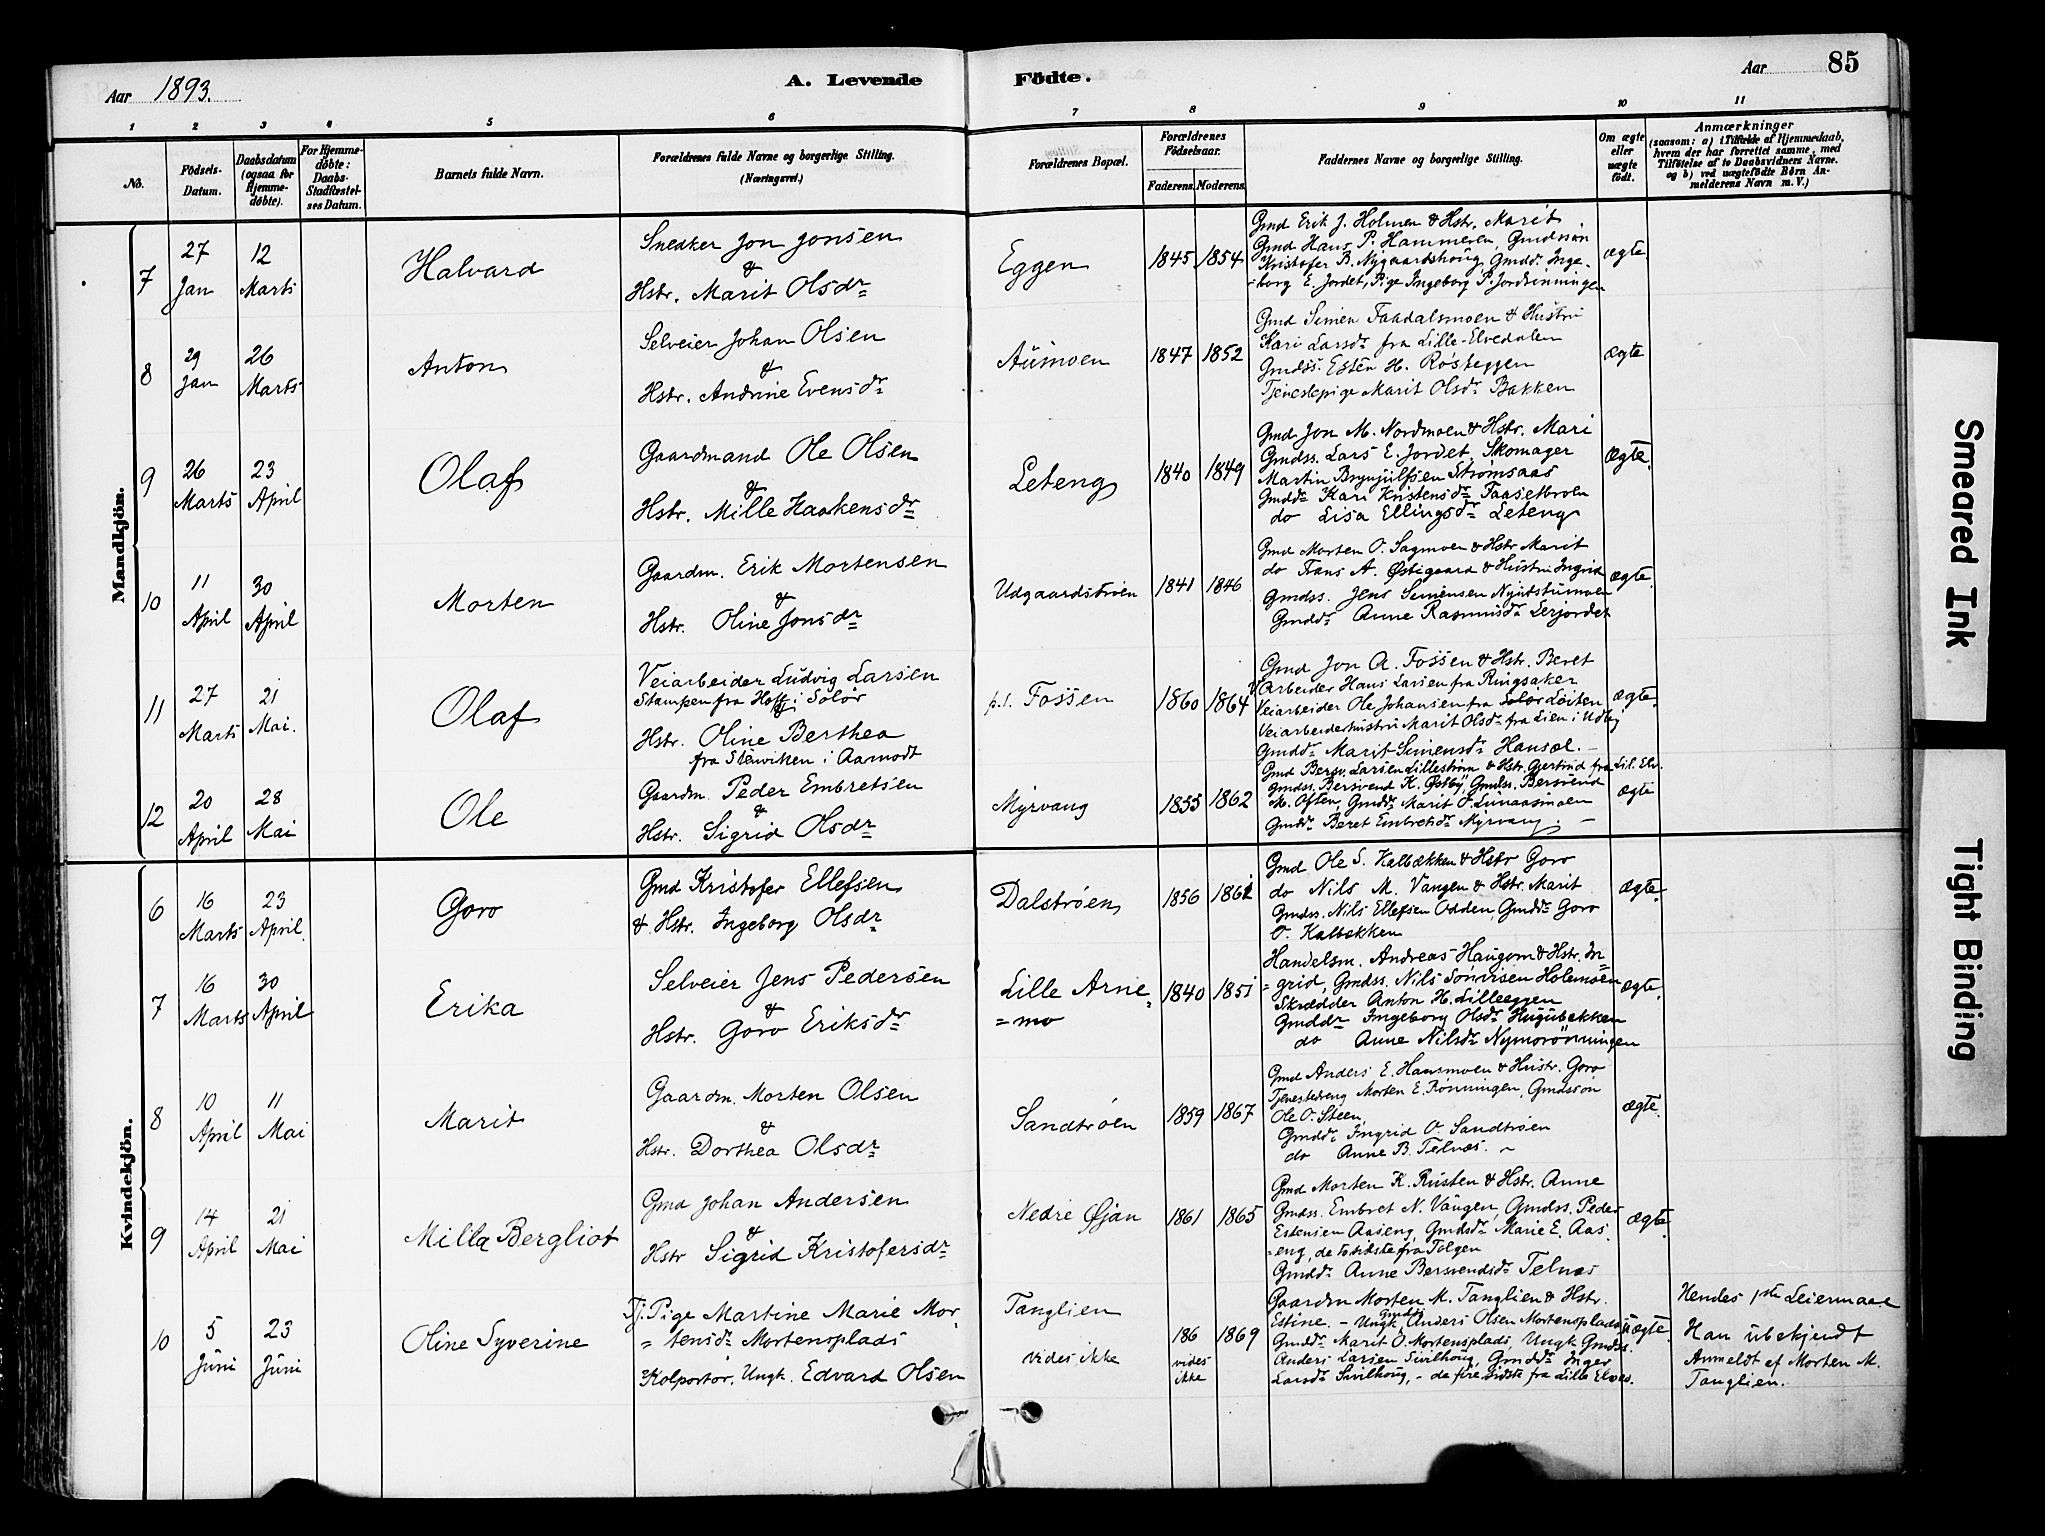 Aar 1893.
A. Levende
Födte.
Aar
85
1 2 3 4 5 6 7 8 9 10 11
No.
Födsels-
Datum.
Daabsdatum
(ogsaa for
Hjemme-
döbte).
For Hjemme-
döbte:
Daabs-
Stadfæstel-
ses Datum.
Barnets fulde Navn.
Forældrenes fulde Navne og borgerlige Stilling.
(Næringsvei.)
Forældrenes Bopæl.
Forældrenes
Födselsaar.
Faderens. Moderens.
Faddernes Navne og borgerlig Stilling.
Om ægte
eller
uægte
födt.
Anmærkninger
(saasom: a) i Tilfælde af Hjemmedaab,
hvem der har forrettet samme, med
Tilföielse af to Daabsvidners Navne.
og b) ved uægtefödte Börn An-
melderens Navn m. V.)
Mandkjön.
7
27
Jan
12
Marts
Halvard
Snedker Jon Jonsen
&
Hstr. Marit Olsdr
Eggen
1845 1854
Gmd Erik J. Holmen & Hstr. Marit
Gmd Hans P. Hammeren, Gmdssön
Kristofer B. Nygaardshoug Gmdd. Inge-
-borg E. Jordet, Pige Ingeborg P. Jordrönningen
ægte
8
29
Jan
26
Marts
Anton
Selveier Johan Olsen
&
Hstr. Andrine Evensdr
Aumoen
1847 1852
Gmd Simen Faadalsmoen & Hustru
Kari Larsdr fra Lille-Elvedalen
Gmdss. Esten H. Røsteggen
Tjenestepige Marit Olsdr Bakken
ægte
9
26
Marts
23
April
Olaf
Gaardmand Ole Olsen
&
Hstr. Mille Haakensdr
Leteng
1840 1849
Gmd Jon M. Nordmoen & Hstr. Mari
Gmdss. Lars E. Jordet, Skomager
Martin Brynjulfsen Strømsaas
Gmddr Kari Kristensdr Faasetbroen
do Lisa Ellingsdr Leteng
ægte.
10
11
April
30
April
Morten
Gaardm. Erik Mortensen
&
Hstr. Oline Jonsdr
Udgaardstrøen
1841 1846
Gmd Morten O. Sagmoen & Hstr Marit
do Hans A. Østigaard & Hustru Ingrid
Gmdss. Jens Simensen Nystumoen
Gmddr Anne Rasmusdr Lerjordet
ægte.
11
27
Marts
21
Mai.
Olaf
Veiarbeider Ludvig Larsen
Stampen fra Hof i Solør
&
Hstr. Oline Berthea
fra Stenviken i Aamodt
p.t. Fossen
1860 1864
Gmd Jon A. Fossen & Hstr. Beret
Arbeider Hans Larsen fra Ringsaker
Veiarbeider Ole Johansen fra Solør Løiten
Veiarbeiderhustru Marit Olsdr fra Lien i Udby
Gmddr Marit Simensdr Hansæl. -
ægte.
12
20
April
28
Mai
Ole
Gaardm. Peder Embretsen
&
Hstr. Sigrid Olsdr
Myrvang
1855 1862
Gmd Bersv. Larsen Lillestrøm & Hstr. Gjertrud fra Lil. Elv.
Gmdss. Bersvend K. Østby, Gmdss. Bersvend
M. Aften, Gmddr Marit O. Lunaasmoen
Gmddr Beret Embretsdr Myrvang. -
ægte
Kvindekjön.
6
16
Marts
23
April.
Goro
Gmd Kristofer Ellefsen
& Hstr. Ingeborg Olsdr
Dalstrøen
1856 1862
Gmd Ole S. Kalbækken & Hstr Goro
do Nils M. Vangen & Hstr. Marit
Gmdss. Nils Ellefsen Odden Gmddr Goro
O. Kalbækken
ægte.
7
16
Marts
30
April
Erika
Selveier Jens Pedersen
&
Hstr. Goro Eriksdr
Lille Arne-
=mo
1840 1851
Handelsm. Andreas Haugom & Hstr. In=
=grid, Gmdss. Nils Holemoen
Skrædder Anton H. Lilleeggen
Gmddr Ingeborg Olsdr Hugubakken
do Anne Nilsdr Nymorönningen
ægte.
8
10
April
11
Mai
Marit
Gaardm. Morten Olsen
&
Hstr. Dorthea Olsdr
Sandtrøen
1859 1867
Gmd Anders E. Hansmoen & Hustr. Goro
Tjenestedreng Morten E. Rønningen, Gmdssøn
Ole O. Steen
Gmddr Ingrid O. Sandtrøen
do Anne B. Telnæs. -
ægte.
9
14
April
21
Mai
Milla Bergliot
Gmd Johan Andersen
&
Hstr Sigrid Kristofersdr
Nedre Øjan
1861 1865
Gmd Morten K. Rusten & Hstr. Anne
Gmdss. Embret N. Vangen, Gmdss. Peder
Estensen Aaseng, Gmdsdr Marie E. Aas
=eng, de to sidste fra Tolgen
Gmddr Anne Bersvendsdr Telnæs
ægte.
10
5
Juni
23
Juni
Oline Syverine
Tj. Pige Martine Marie Mor-
=tensdr Mortensplads
Kolportør, Ungk. Edvard Olsen
Tanglien
vides ikke
186
vides
ikke
1869
Gaardm Morten M. Tanglien & Hstr.
Estine. - Ungk. Gmdss. Anders Olsen Mortensplads
Gmddr Marit O. Mortensplads, Ungk Gmdss.
Anders Larsen Sivilhoug, Gmddr Inger
Larsdr Sivilhoug, - de fire sidste fra Lille Elved.
uægte.
Hendes 1ste Leiermaal
Han ubekjendt
Anmeldt af Morten M.
Tanglien.
Smeared Ink
Tight Binding